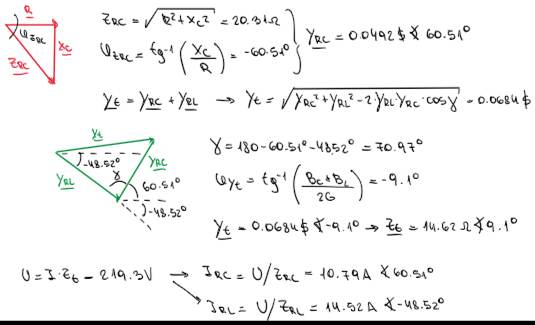 R
φZRC
XC
ZRC
ZRC = √R²+XC² = 20.31Ω
φZRC = tg⁻¹ (XC/R) = -60.51°
YRC = 0.0492 $ ∢ 60.51°
Yt = YRC + YRL → Yt = √YRC²+YRL²-2·YRL·YRC·cosγ = 0.0684 $
Yt
-48.52°
YRL
γ
YRC
60.51°
-48.52°
γ = 180-60.51°-48.52° = 70.97°
φYt = tg⁻¹ (BC+BL/2G) = -9.1°
Yt = 0.0684 $ ∢-9.1° → Zt = 14.62 Ω ∢9.1°
U = I·Zt = 219.3V → IRC = U/ZRC = 10.79A ∢60.51°
IRL = U/ZRL = 14.52A ∢-48.52°